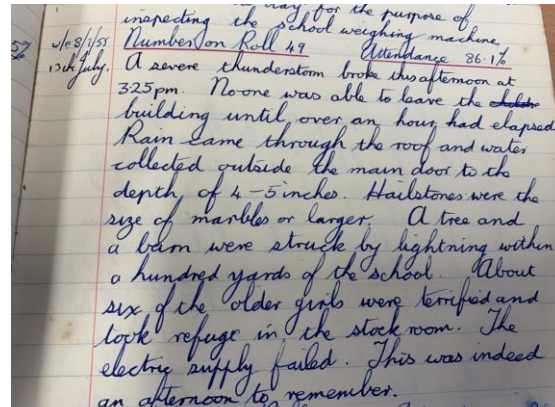 day for the purpose of
inspecting the school weighing machine.
57 w/e 8/7/55 Number on Roll 49 Attendance 86.1%
13th July. A severe thunderstorm broke this afternoon at
3.25 pm. No one was able to leave the
building until over an hour had elapsed
Rain came through the roof and water
collected outside the main door to the
depth of 4–5 inches. Hailstones were the
size of marbles or larger. A tree and
a barn were struck by lightning within
a hundred yards of the school. About
six of the older girls were terrified and
took refuge in the stock room. The
electric supply failed. This was indeed
an afternoon to remember.